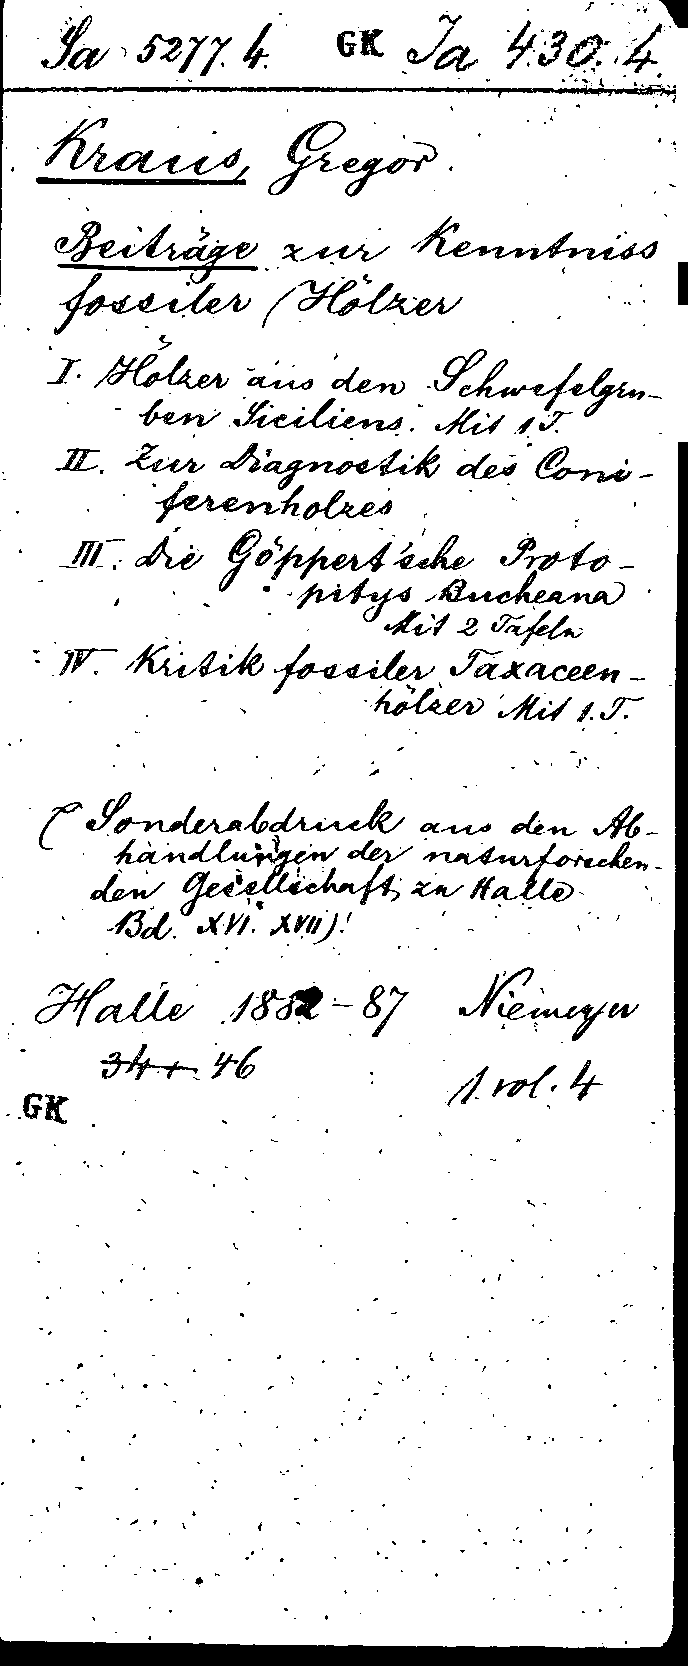 Sa 5277. 4. GK Ja 430. 4
Kraus, Gregor.
Beiträge zur Kenntniss
fossiler Hölzer
I. Hölzer aus den Schwefelgru-
ben Siciliens. Mit 1 T.
II. Zur Diagnostik des Coni-
ferenholzes
III. Die Göppert'sche Proto-
pitys Bucheana
Mit 2 Tafeln
IV. Kritik fossiler Taxaceen-
hölzer Mit 1. T.
(Sonderabdruck aus den Ab-
handlungen der naturforschen-
den Gesellschaft zu Halle
Bd. XVI. XVII)!
Halle 1882-87 Niemeyer
34 + 46
1. vol. 4
GK